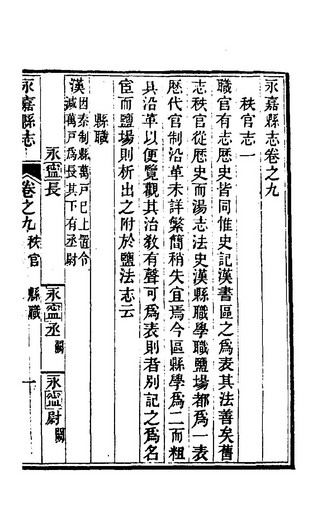 永嘉縣志卷之九
秩官志一
職官有志歷史皆同惟史記漢書區之爲表其法善矣舊
志秩官從歷史而湯志法史漢縣職學職鹽場都爲一表
歷代官制沿革未詳繁簡稍失宜焉今區縣學爲二而粗
具沿革以便覽觀其治敎有聲可爲表則者別記之爲名
宦而鹽場則析出之附於鹽法志云
縣職
漢因秦制縣萬戸已上置令
減萬戸爲長其下有丞尉
永寧長 永寧丞闕 永寧尉闕
永嘉縣志 卷之九 秩官 縣職 一